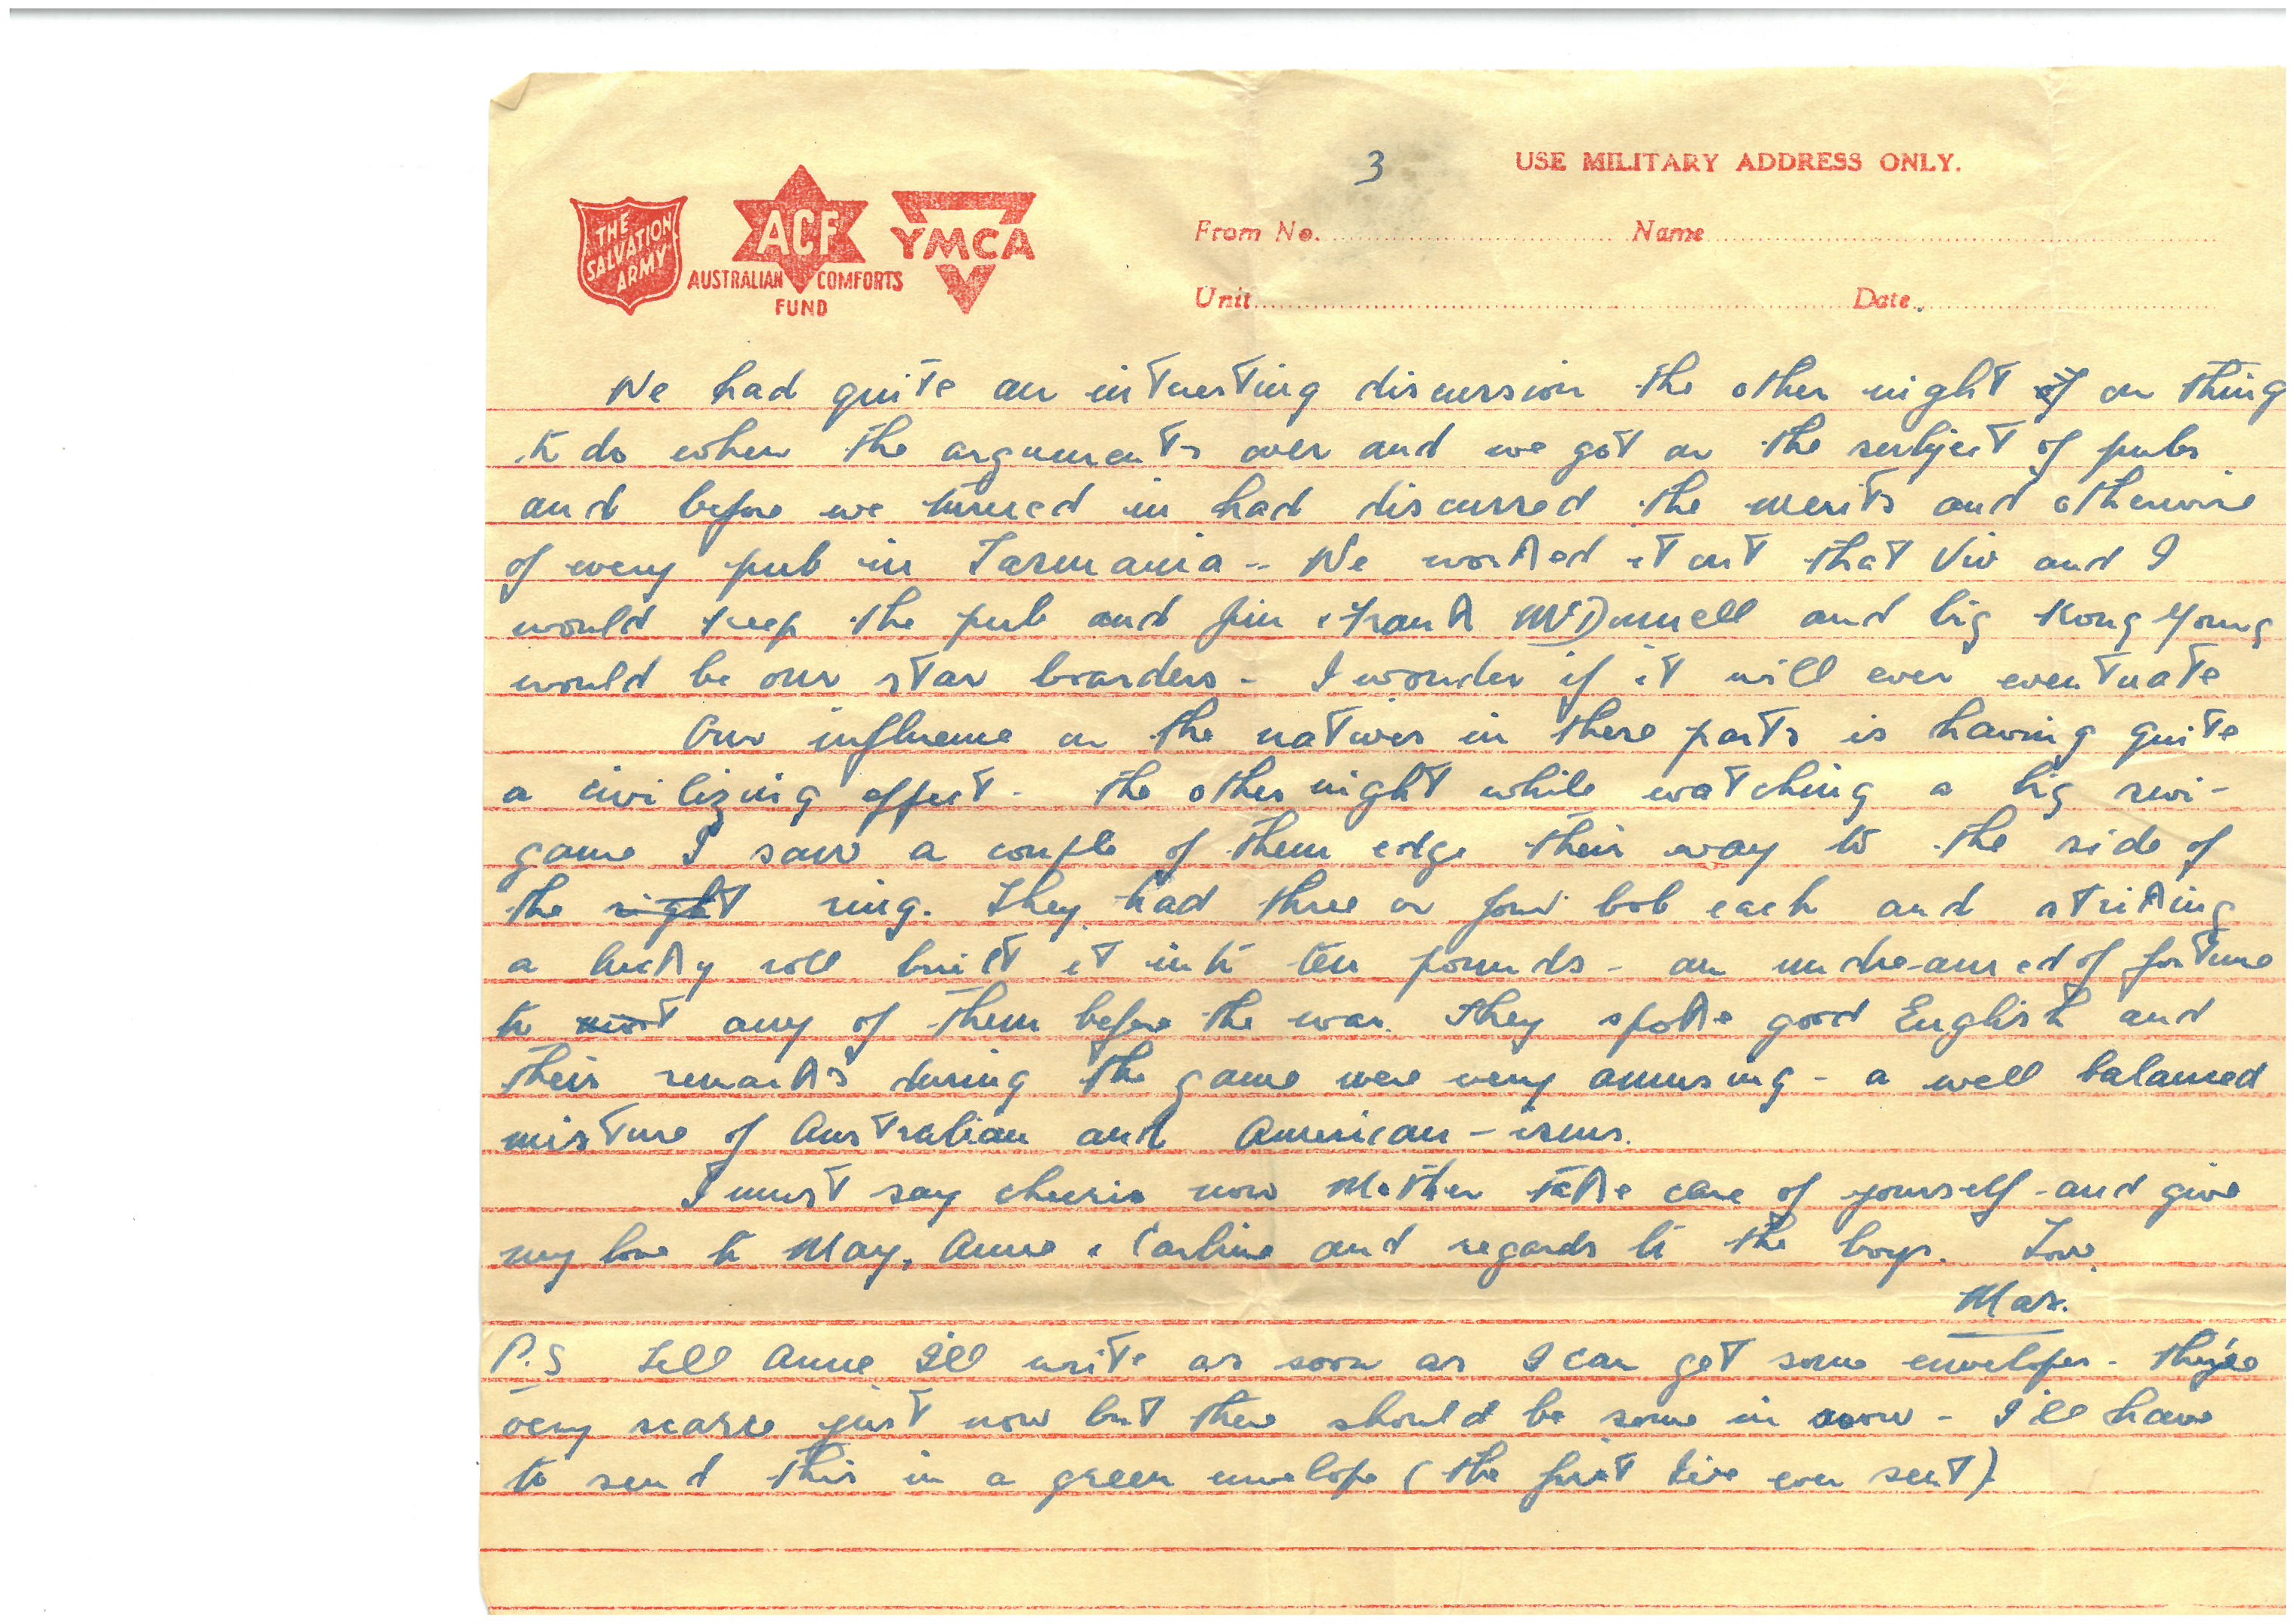 3
USE MILITARY ADDRESS ONLY.
THE SALVATION ARMY
ACF
AUSTRALIAN COMFORTS FUND
YMCA
From No. Name
Unit Date
We had quite an interesting discussion the other night of on thing
to do when the arguments over and we got on the subject of pubs
and before we turned in had discussed the merits and otherwise
of every pub in Tasmania - We worked it out that Viv and I
would keep the pub and Jim & Frank McDonnell and big Young
would be our star boarders - I wonder if it will ever eventuate
Our influence on the natives in these parts is having quite
a civilizing effect - The other night while watching a big swi-
game I saw a couple of them edge their way to the side of
the right ring. They had three or four bob each and striking
a lucky roll built it into ten pounds - an undreamed of fortune
to any of them before the war. They spoke good English and
their remarks during the game were very amusing - a well balanced
mixture of Australian and American-isms.
I must say cheerio now Mother take care of yourself - and give
my love to May, Anne & and regards to the boys. Love
Max.
P.S Tell Anne I'll write as soon as I can get some envelopes - they're
very scarce just now but there should be some in soon - I'll have
to send this in a green envelope (the first I've ever sent)